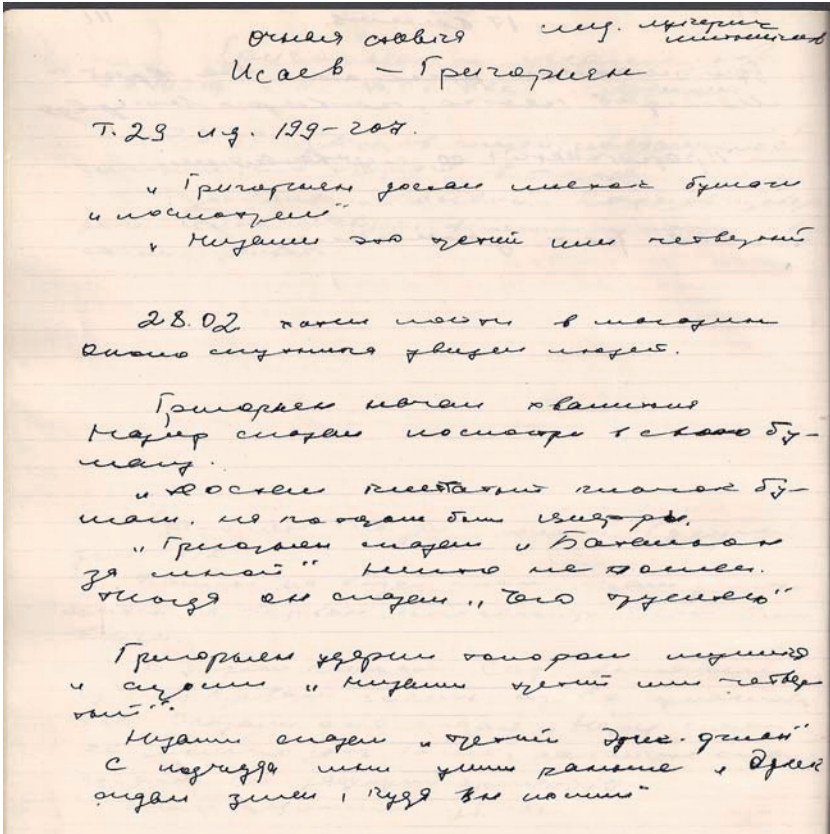 очная ставка след.
Исаев – Григорьян
Т. 29 лд. 199-207.
„ Григорьян достал листок бумаги
и посмотрел“
„ Низами это третий или четвертый
28.02 хотел пойти в магазин
около спутника увидел людей.
Григорьян начал
Надир сказал посмотри в свою бу-
магу.
„ достал клетчатый клочок бу-
маги, на котором были цифры.
„ Григорьян сказал „ Батальон
за мной“ никто не пошел.
тогда он сказал „ Чего трусите“
Григорьян ударил топором мужчину
и спросил „ Низами третий или четвер
тый“.
Низами сказал „ третий Эдик-джан“
С подъезда мы ушли раньше, Эдик
ждал знал, куда мы пошли“